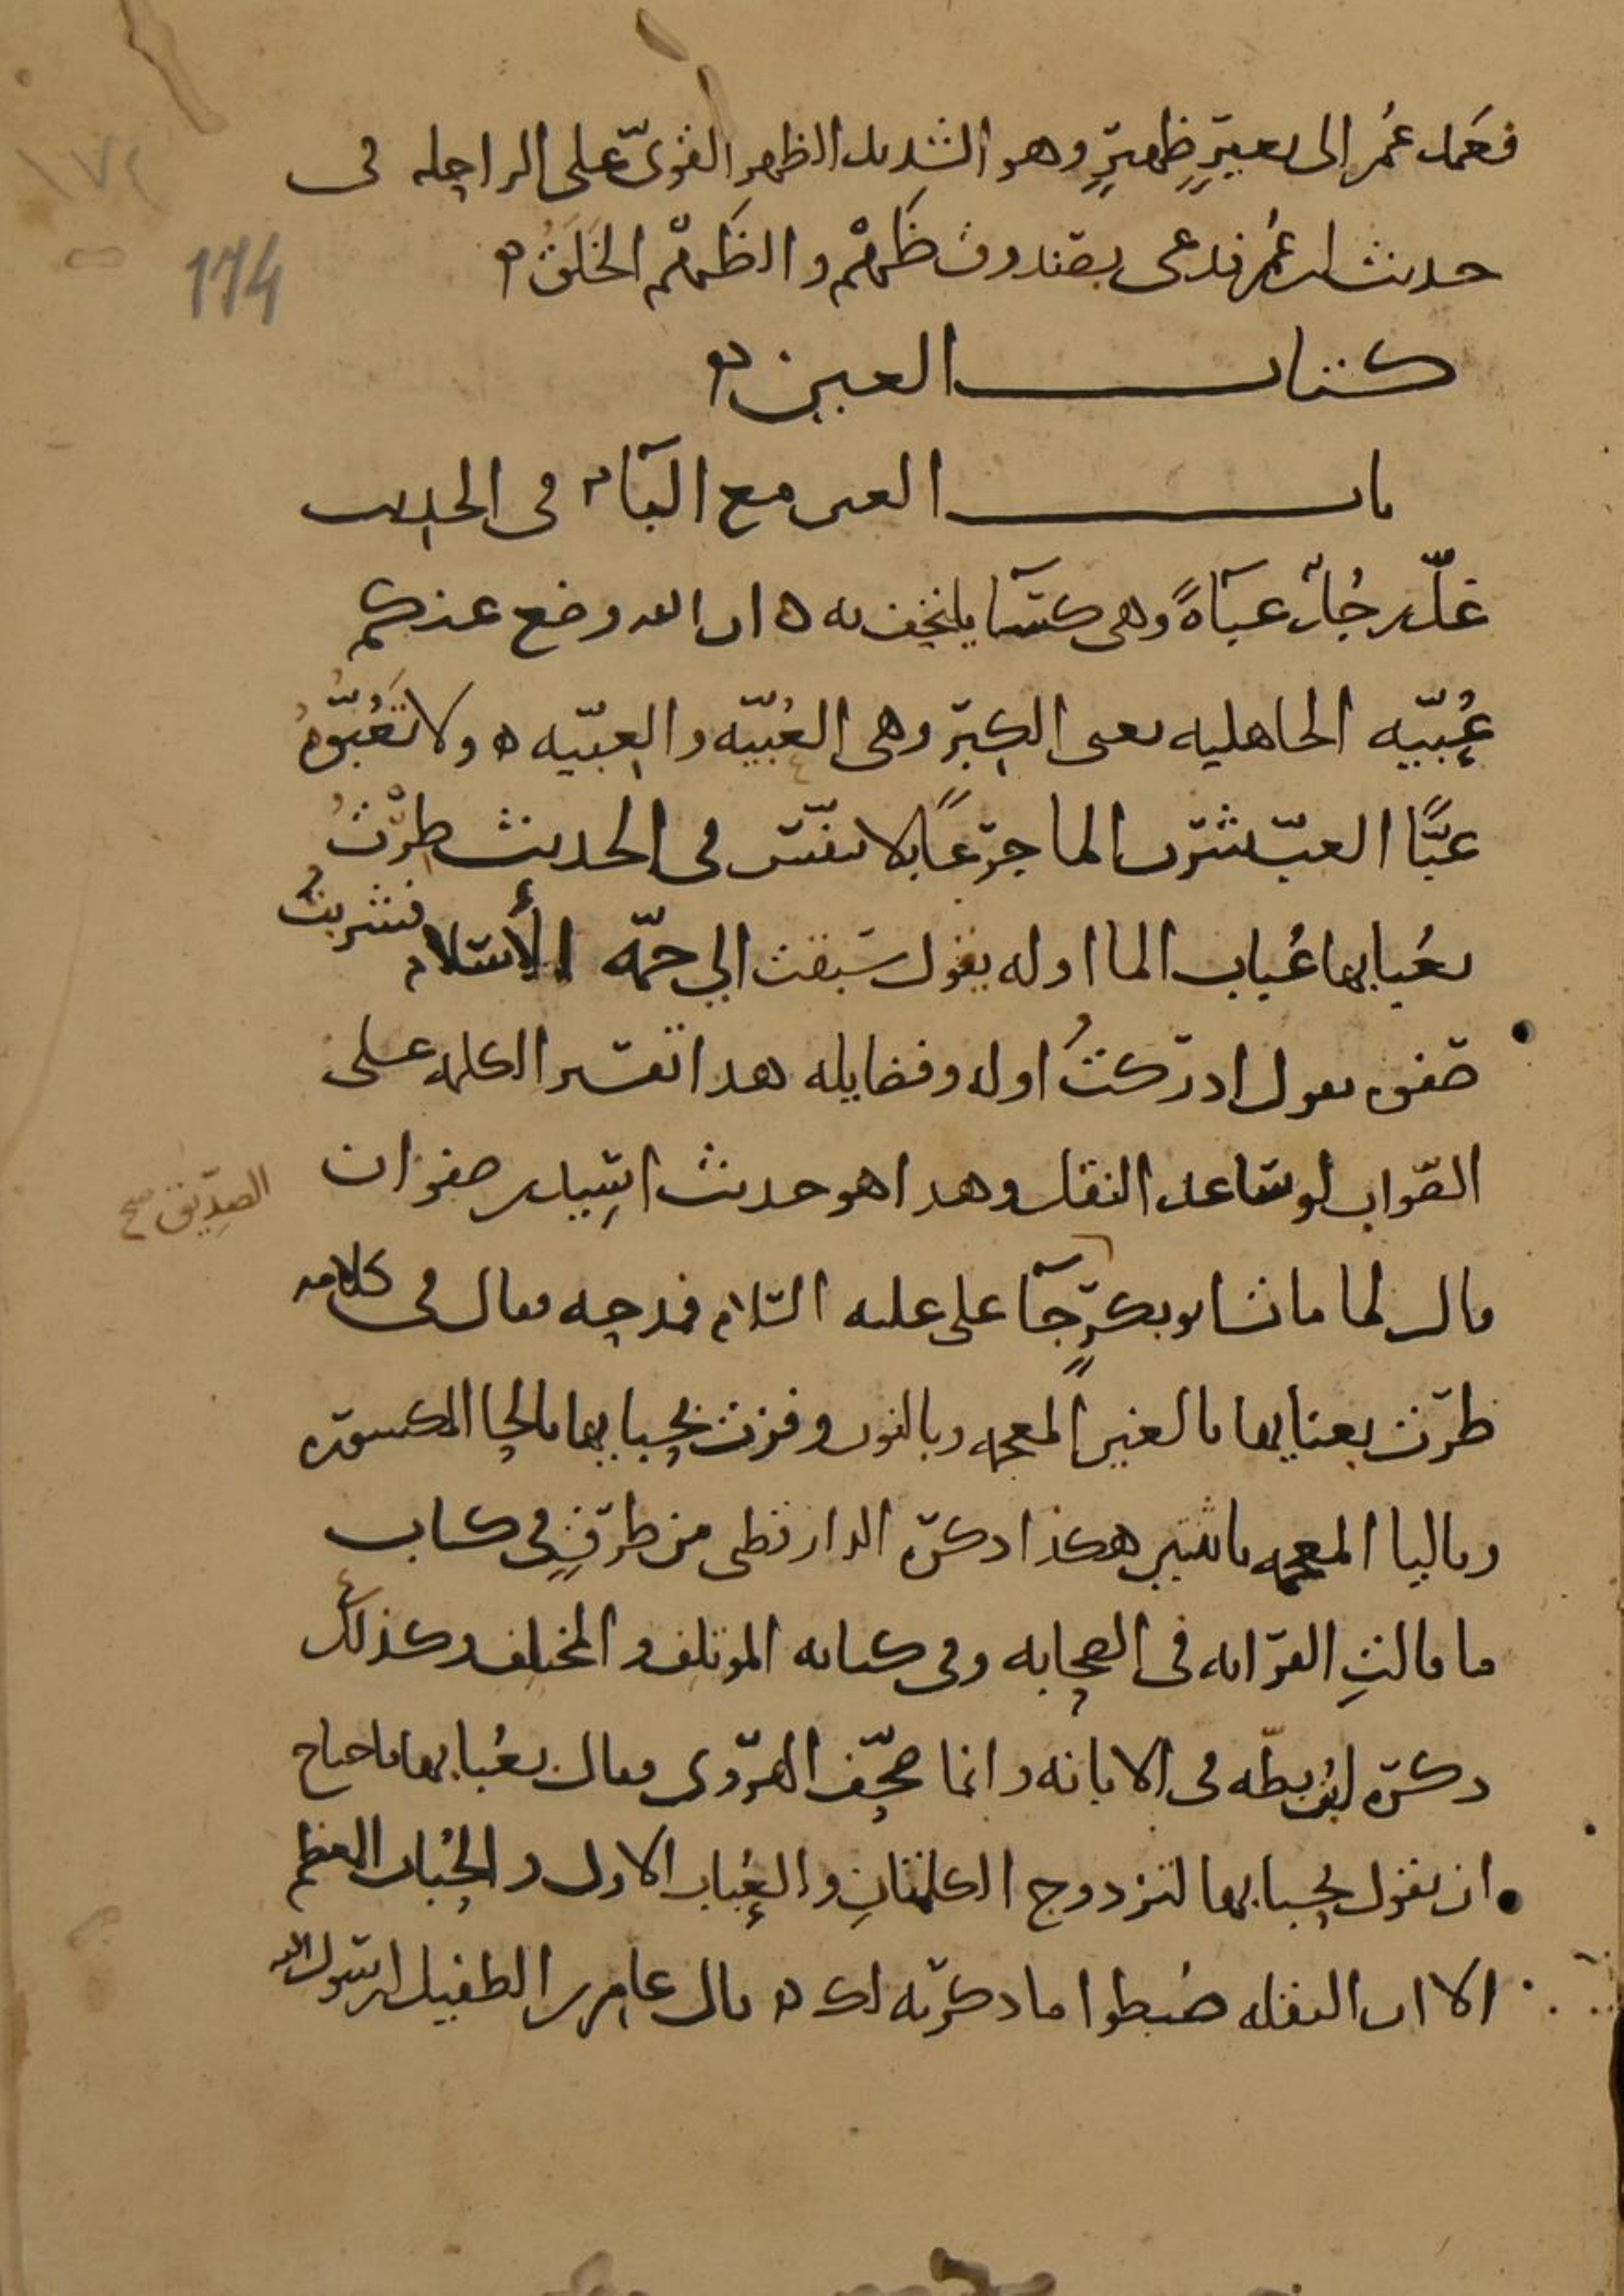 فعمد عُمر الى بعيرٍ ظهيرٍ وهو الشديد الظهر القوىّ على الراحله فى
حديث ابن عمر فدعى بصندوق ظَهْم والظَهْم الخَلَقُ ه
كتاب العين ه
باب العين مع البآء فى الحديث
غلّ رجُلٌ عبآةً وهى كسآ يلتحف به ه ان الله وضع عنكم
عُبِّيّه الجاهليه يعنى الكِبر وهى العُبيّه والعِبيّه ه ولا تَعُبّوهُ
عبًّا العبّ شرب الما جرعًا بلا تنفّس فى الحديث طِرْتُ
بعُبابها عُباب الما اوله يقول سبقت الى جمّه الأسلام فشربتُ
صفوه يقول ادركتُ اوله وفضايله هذا تفسير الكلمه على
الصّواب لو ساعد النقل وهذا هو حديث اسِيد بن صفوان
قال لما مات ابو بكر جآ على عليه السّلام فمدحه فقال فى كلامه
الصدّيق صح
طرت بغنايها بالغين المعجمه وبالنون وفزت بحبايها بالحا المكسوره
وباليا المعجمه باثنين هكذا ذكره الدارقطنى من طرقٍ فى كتاب
ما قالتِ القرابه فى الصحابه وفى كتابه الموتلف والمختلف وكذلك
ذكره ابن بطّه فى الابانه وانما صحّف الهروى فقال بعُبابها فاحتاج
ان يقول بحبابها لتزدوج الكلمتانِ والعُباب الاول والحُباب المعظم
الا ان النقله ضبطوا ما ذكرته لك ه قال عامر بن الطفيل لرسول الله
١٧٤
174